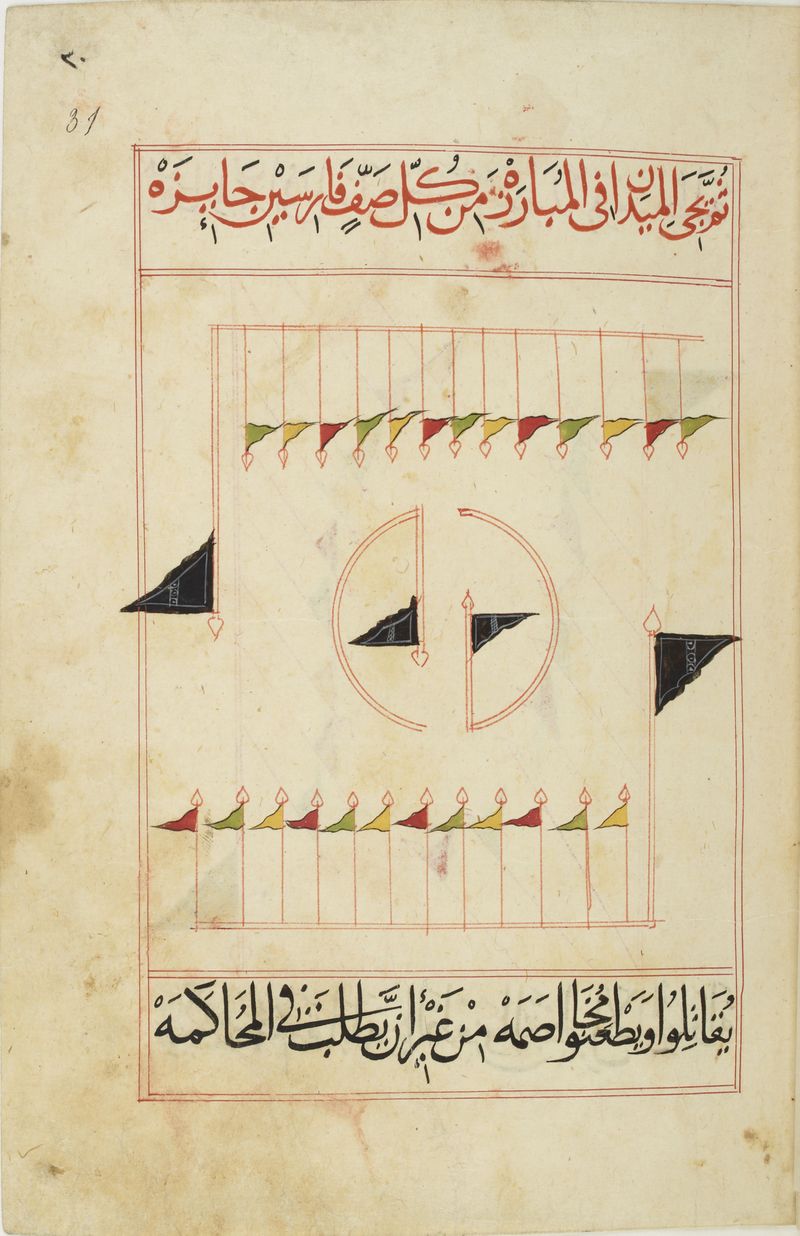 ٣٠
31
ثُمَّ يَجِئ المَيدَان فى المُبَارَزَهْ مِن كُلِّ صَفٍّ فَارِسَيْنِ جَايِزَهْ
يُقَاتِلُوا وَيَطْعَنُوا مُخَاصَمَهْ مِنْ غَيْرِ أنْ يَطْلُبَ فى المُحَاكَمَهْ